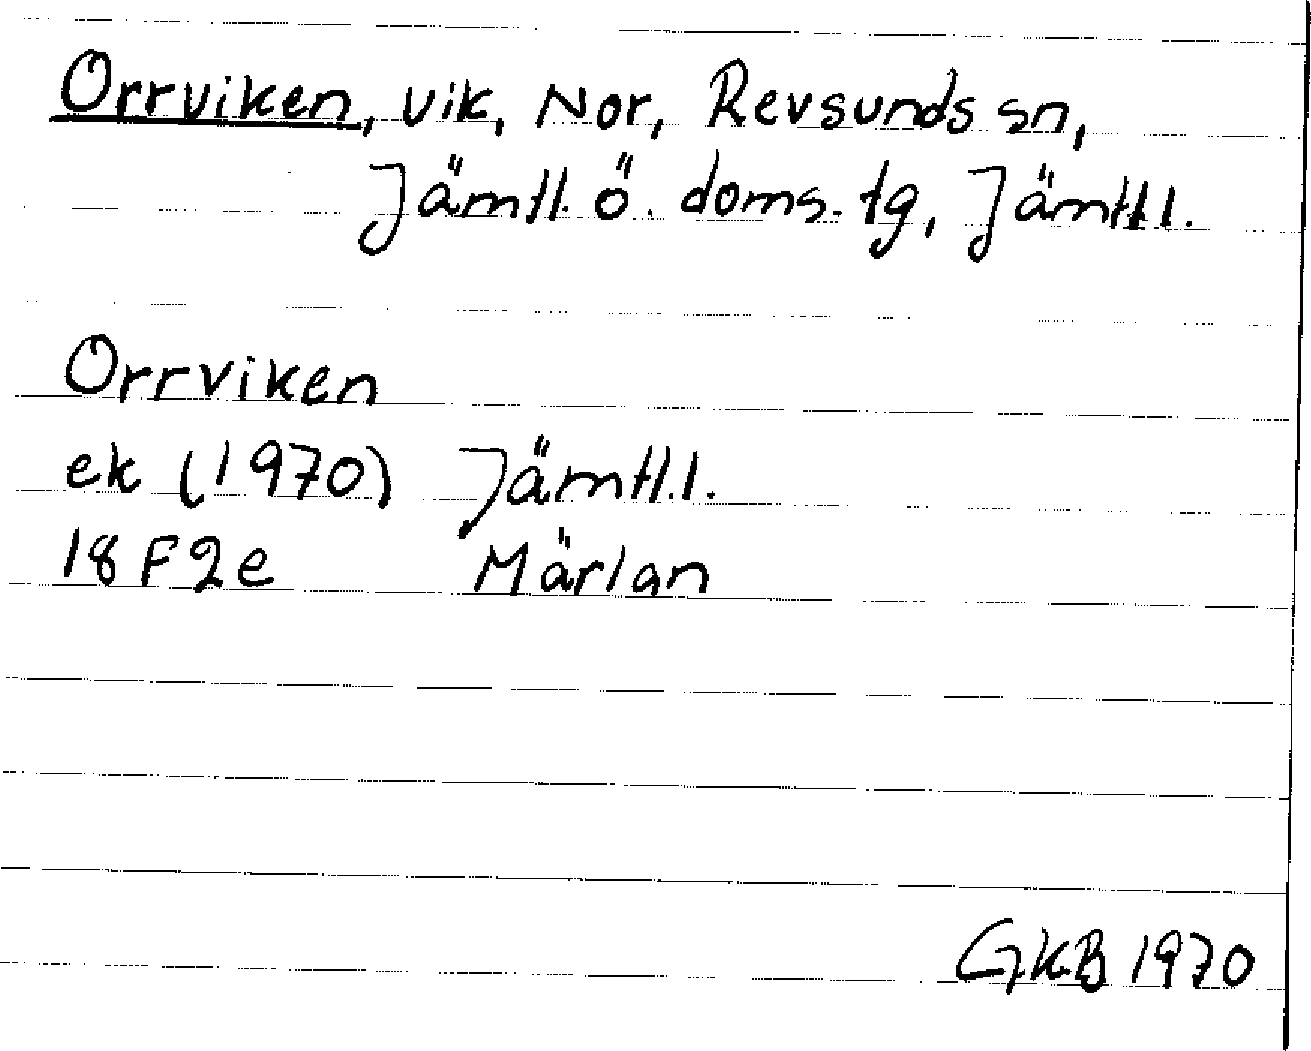 Orrviken, vik, Nor, Revsunds sn,
Jämtl. ö. doms. tg, Jämtl l.
Orrviken
ek (1970) Jämtl. l.
18 F 2e Märlan
GKB 1970